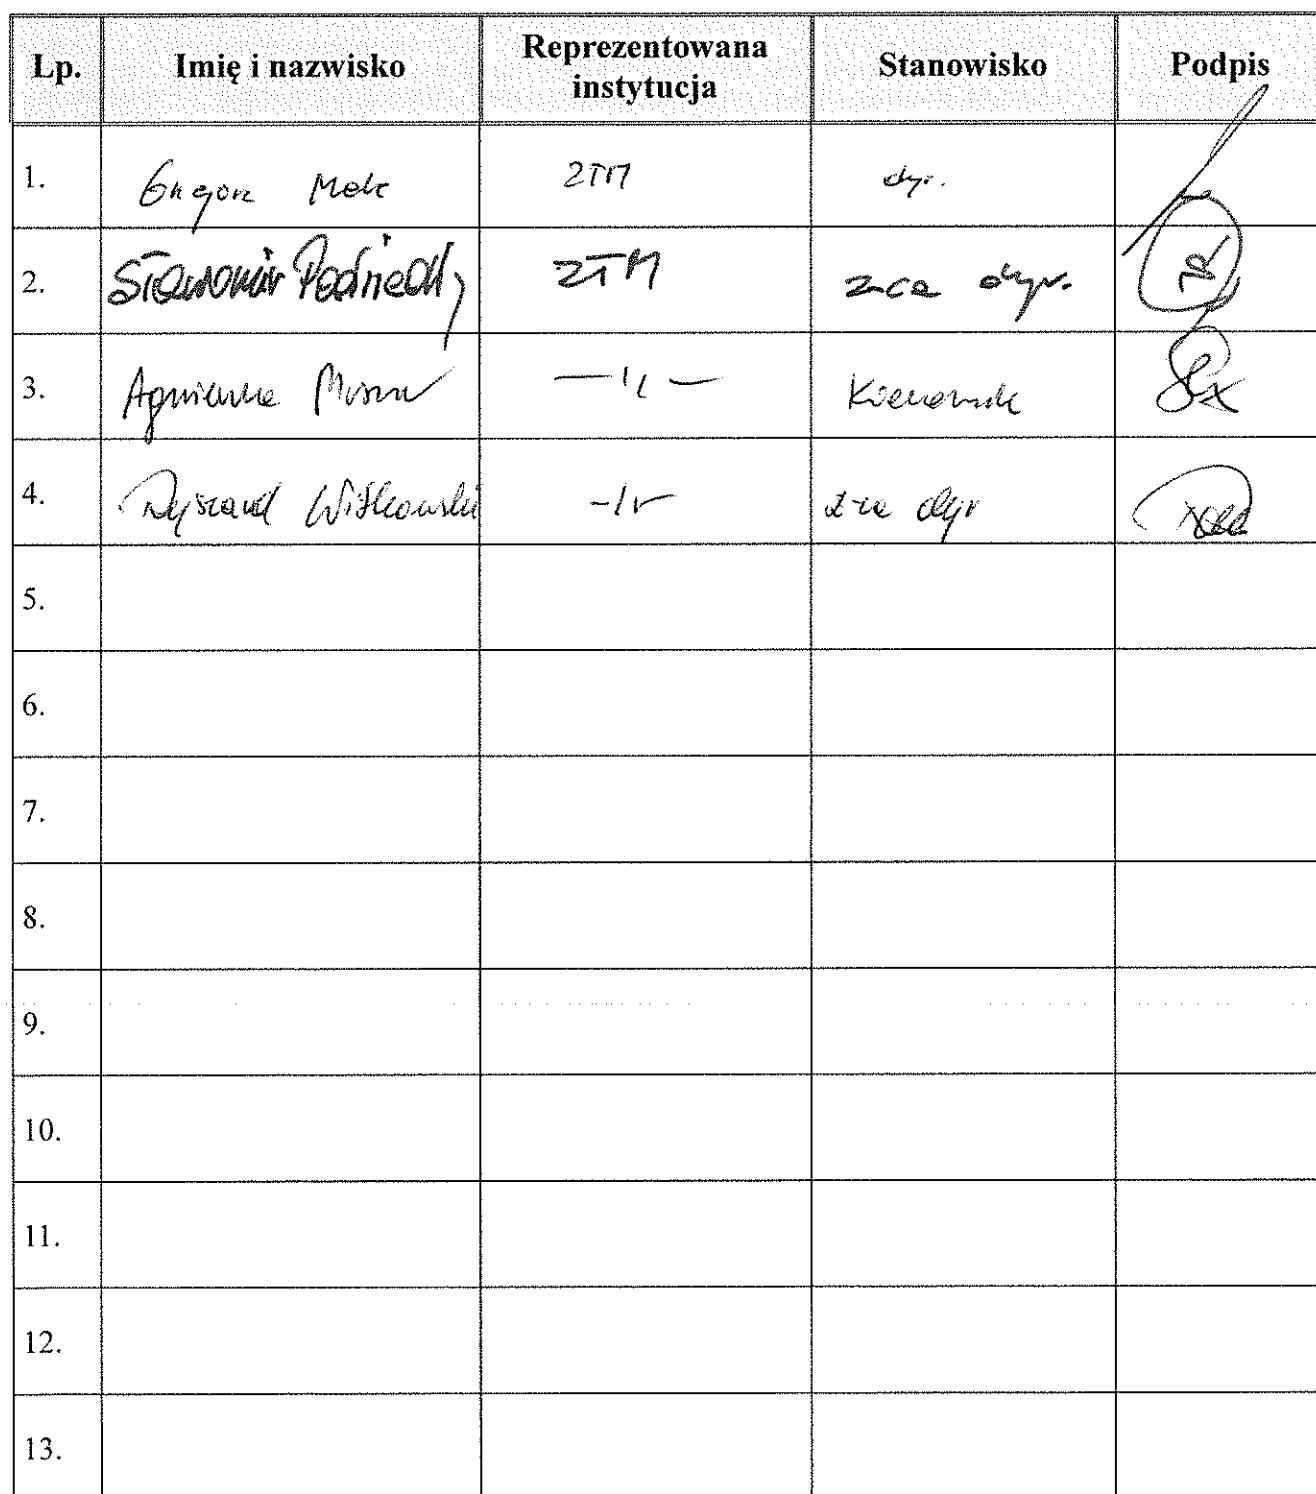 Lp. Imię i nazwisko Reprezentowana instytucja Stanowisko Podpis
1. ZTM dyr.
2. Sławomir ZTM z-ca dyr.
3. Agnieszka —„— Kierownik
4. Ryszard Witkowski -„- z-ca dyr
5.
6.
7.
8.
9.
10.
11.
12.
13.